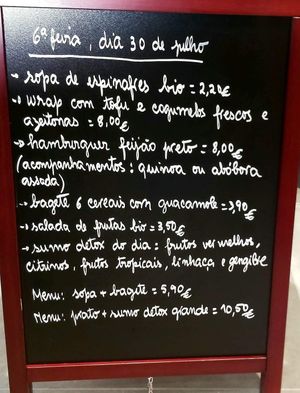 6ª feira, dia 30 de julho
→ sopa de espinafres bio = 2,20€
→ wrap com tofu e cogumelos frescos e
azeitonas = 8,00€
→ hamburguer feijão preto = 8,00€
(acompanhamentos: quinoa ou abóbora
assada)
→ bagete 6 cereais com guacamole = 3,90€
→ salada de frutas bio = 3,50€
→ sumo detox do dia: frutos vermelhos,
citrinos, frutos tropicais, linhaça e gengibre
Menu: sopa + bagete = 5,90€
Menu: prato + sumo detox grande = 10,50€